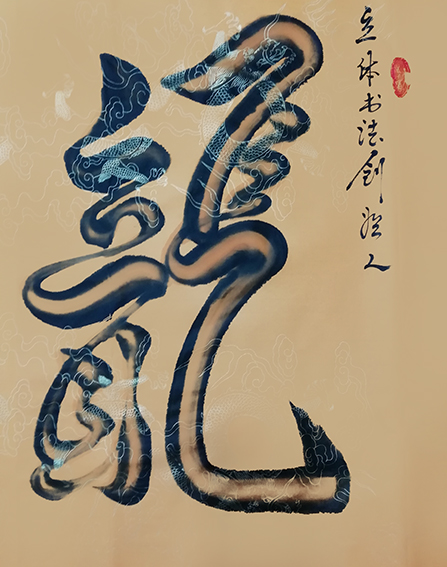 立体书法创始人
龍